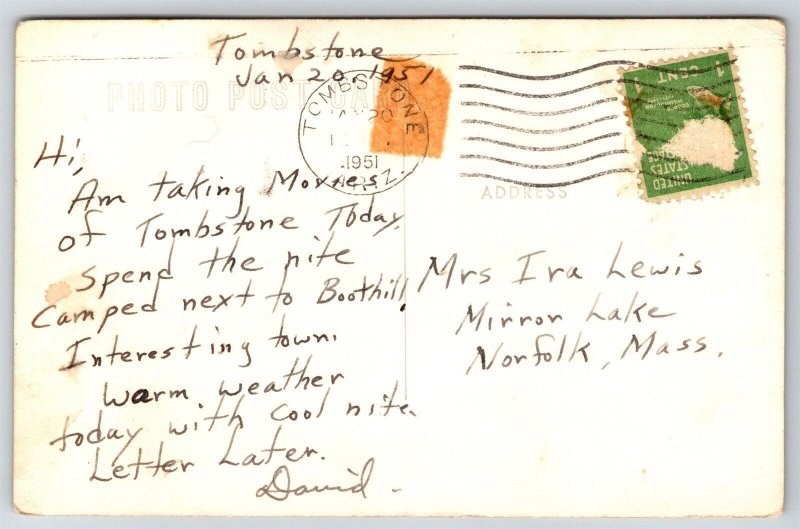 Tombstone
Jan 20, 1951
PHOTO POST CARD
TOMBSTONE
JAN 20
1951
ARIZ.
1 CENT 1
UNITED
STATES
POSTAGE
ADDRESS
Hi,
Am taking Movies
of Tombstone Today.
Spend the nite
Camped next to Boothill.
Interesting town.
Warm weather
today with cool nite.
Letter Later.
David.
Mrs Ira Lewis
Mirror Lake
Norfolk, Mass.